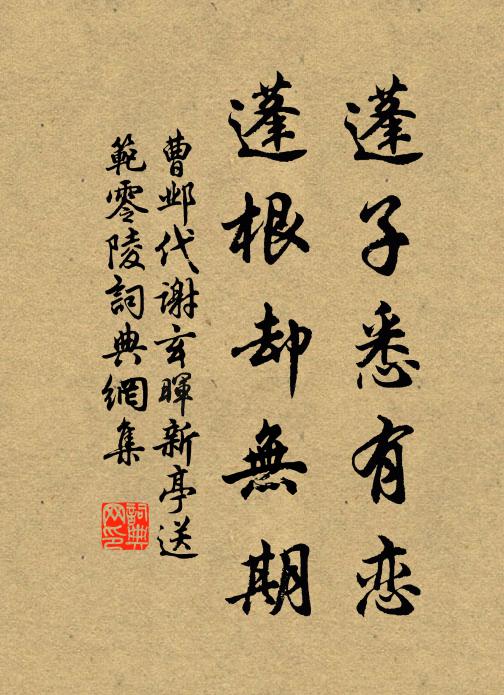 蓬子悉有恋
蓬根却無期
曹邺代谢玄暉新亭送
範零陵詞典網集
詞典網印